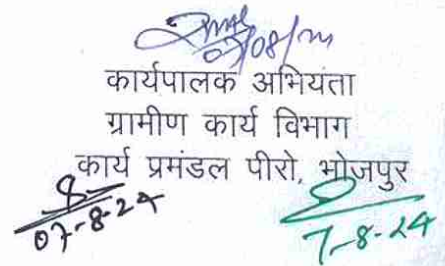 07/08/24
कार्यपालक अभियंता
ग्रामीण कार्य विभाग
कार्य प्रमंडल पीरो, भोजपुर
07-8-24
7-8-24